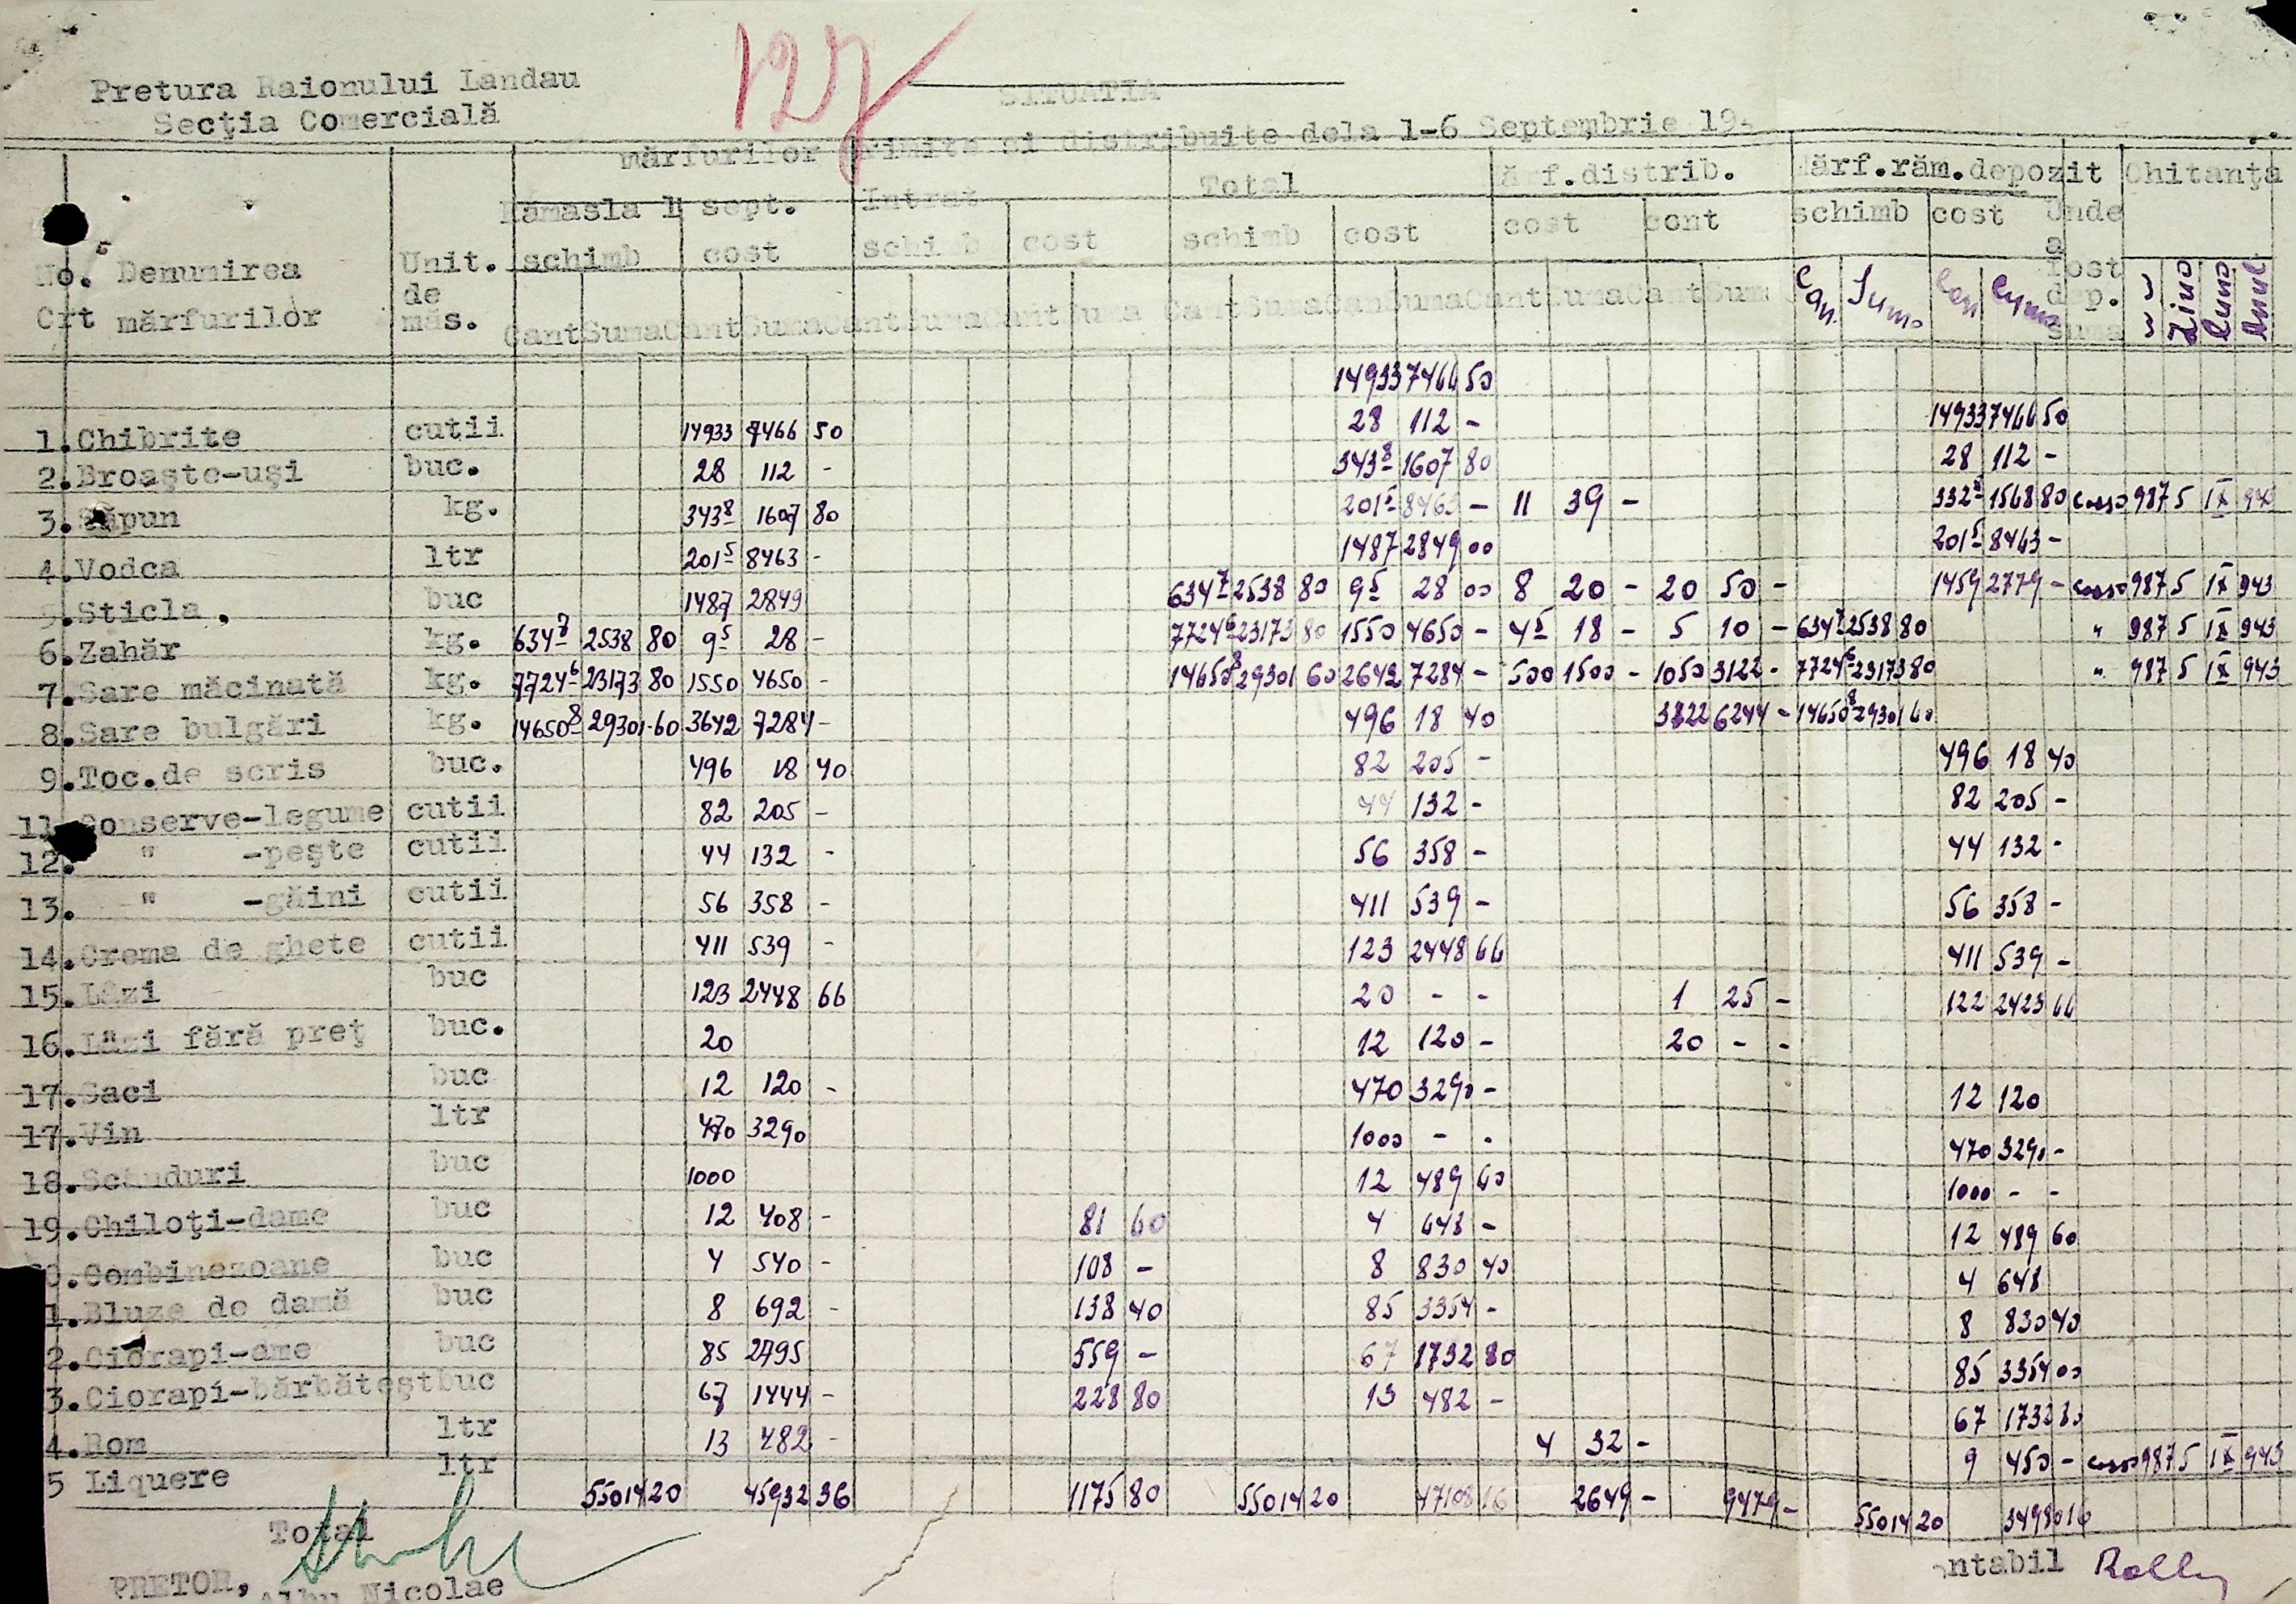 127
Pretura Raionului Landau
Secţia Comercială
SITUATIA
mărfurilor primite si distribuite dela 1-6 Septembrie 19
No. Crt
Denumirea mărfurilor
Unit. de măs.
Rămasla 1 sept.
Intrat
Total
Mărf.distrib.
Mărf.răm.depozit
Chitanţa
schimb cost schimb cost schimb cost cost cont schimb cost Unde a fost dep. suma
Cant Suma Cant Suma Cant Suma Cant Suma Cant Suma Can Suma Cant Suma Cant Suma Can Suma Can Suma Ziua Luna Anul
14933 7466 50
1. Chibrite cutii 14933 7466 50 28 112 - 14933 7466 50
2. Broaşte-uşi buc. 28 112 - 343⁸ 1607 80 28 112 -
3. Săpun kg. 343⁸ 1607 80 201⁵ 8463 - 11 39 - 332⁸ 1568 80 casso 987 5 IX 943
4. Vodca ltr 201⁵ 8463 - 1487 2849 00 201⁵ 8463 -
5. Sticla, buc 1487 2849 634⁷ 2538 80 9⁵ 28 00 8 20 - 20 50 - 1459 2779 - casso 987 5 IX 943
6. Zahăr kg. 634⁷ 2538 80 9⁵ 28 - 7724⁶ 23173 80 1550 4650 - 4⁵ 18 - 5 10 - 634⁷ 2538 80 " 987 5 IX 943
7. Sare măcinată kg. 7724⁶ 23173 80 1550 4650 - 14650⁸ 29301 60 2642 7284 - 500 1500 - 1050 3122 - 7724⁶ 23173 80 " 987 5 IX 943
8. Sare bulgări kg. 14650⁸ 29301.60 3642 7284 - 496 18 40 3822 6244 - 14650⁸ 29301 60
9. Toc.de scris buc. 496 18 40 82 205 - 496 18 40
11. Conserve-legume cutii 82 205 - 44 132 - 82 205 -
12. " -peşte cutii 44 132 - 56 358 - 44 132 -
13. " -găini cutii 56 358 - 411 539 - 56 358 -
14. Crema de ghete cutii 411 539 - 123 2448 66 411 539 -
15. Lăzi buc 123 2448 66 20 - - 1 25 - 122 2423 66
16. Lăzi fără preţ buc. 20 12 120 - 20 - -
17. Saci buc 12 120 - 470 3290 - 12 120
17. Vin ltr 470 3290 1000 - - 470 3290 -
18. Scânduri buc 1000 12 489 60 1000 - -
19. Chiloţi-dame buc 12 408 - 81 60 4 648 - 12 489 60
0. Combinezoane buc 4 540 - 108 - 8 830 40 4 648
1. Bluze de damă buc 8 692 - 138 40 85 3354 - 8 830 40
2. Ciorapi-ame buc 85 2795 559 - 67 1732 80 85 3354 00
3. Ciorapi-bărbăteşt buc 67 1444 - 228 80 13 482 - 67 1732 80
4. Rom ltr 13 482 - 4 32 - 9 450 - casso 987 5 IX 943
5 Liquere ltr
55014 20 45932 36 1175 80 55014 20 47108 16 2649 - 9479 - 55014 20 34980 16
Total
PRETOR,
Albu Nicolae
ntabil